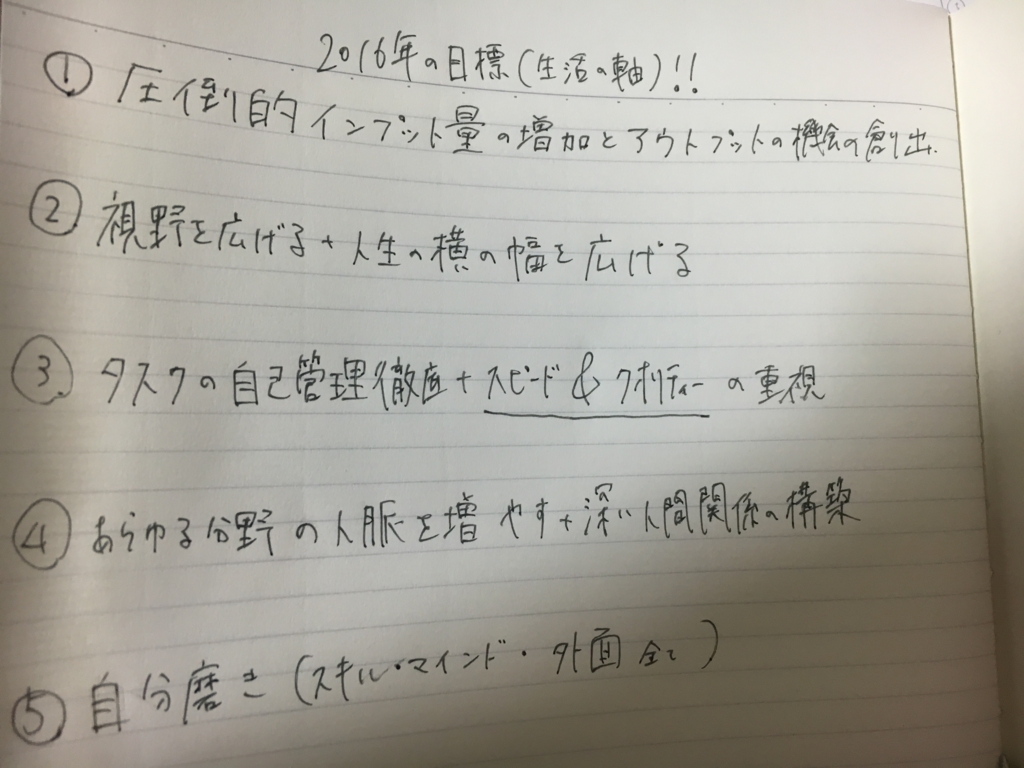 2016年の目標(生活の軸)!!
① 圧倒的インプット量の増加とアウトプットの機会の創り出.
② 視野を広げる + 人生の横の幅を広げる
③ タスクの自己管理徹底 + スピード & クオリティーの重視
④ あらゆる分野の人脈を増やす + 深い人間関係の構築
⑤ 自分磨き (スキル・マインド・外面 全て)